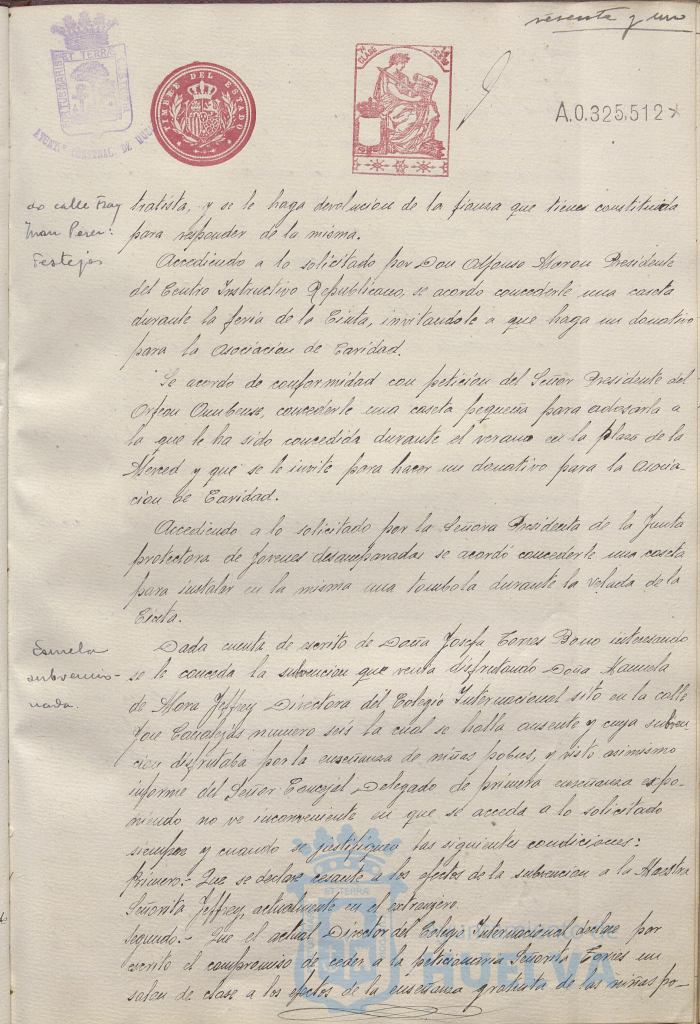 sesenta y uno
PORTUS MARIS ET TERRÆ CUSTODIA
AYUNT. CONSTNAL. DE HUELVA
TIMBRE DEL ESTADO
CLASE
PESETA
A.0.325,512*
do calle Fray
Juan Perez:
Festejos
tratista, y se le haga devolucion de la fianza que tiene constituida
para responder de la misma.
Accediendo a lo solicitado por Don Alfonso Moron Presidente
del Centro Instructivo Republicano, se acordo concederle una caseta
durante la feria de la Cinta, invitandole a que haga un donativo
para la Asociacion de Caridad.
Se acordo de conformidad con peticion del Señor Presidente del
Orfeon Onubense, concederle una caseta pequeña para adosarla a
la que le ha sido concedida durante el verano en la plaza de la
Merced y que se le invite para hacer un donativo para la Asocia-
cion de Caridad.
Accediendo a lo solicitado por la Señora Presidenta de la Junta
protectora de Jovenes desamparadas se acordó concederle una caseta
para instalar en la misma una tombola durante la velada de la
Cinta.
Escuela
subvencio-
nada.
Dada cuenta de escrito de Doña Josefa Torres Bono interesando
se le conceda la subvencion que venia disfrutando Doña Manuela
de Mora Jeffrey Directora del Colegio Internacional sito en la calle
José Canalejas numero seis la cual se halla ausente y cuya subven-
cion disfrutaba por la enseñanza de niñas pobres, y visto asimismo
informe del Señor Concejal Delegado de primera enseñanza expo-
niendo no ve inconveniente en que se acceda a lo solicitado
siempre y cuando se justifiquen las siguientes condiciones:
Primero.- Que se declare cesante a los efectos de la subvencion a la Maestra
Señorita Jeffrey, actualmente en el extranjero.
Segundo.- Que el actual Director del Colegio Internacional, declare por
escrito el compromiso de ceder a la peticionaria Señorita Torres un
salon de clase a los efectos de la enseñanza gratuita de las niñas po-
HUELVA